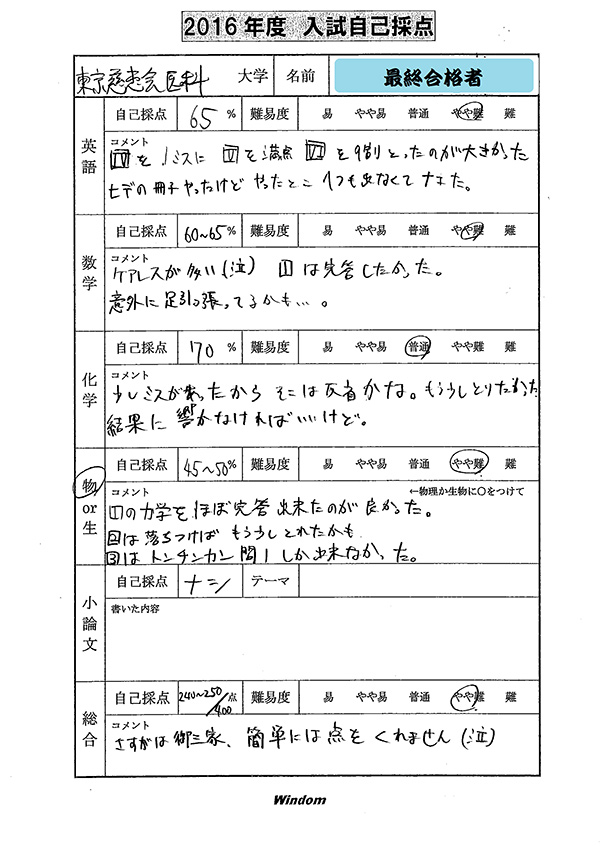 2016年度 入試自己採点
東京慈恵会医科 大学 名前 最終合格者
英語
自己採点 65 % 難易度 易 やや易 普通 やや難 難
コメント
Ⅳを1ミスに Ⅴを満点 を9割とったのが大きかった
ヒデの冊子やったけど やったとこ 1つも出なくてナえた。
数学
自己採点 60~65 % 難易度 易 やや易 普通 やや難 難
コメント
ケアレスが多い(泣) 1は完答したかった。
意外に足引っ張ってるかも…。
化学
自己採点 70 % 難易度 易 やや易 普通 やや難 難
コメント
少しミスがあったから そこは反省かな。もう少しとりたかった
結果に響かなければいいけど。
物or生
自己採点 45~50 % 難易度 易 やや易 普通 やや難 難
コメント ←物理か生物に○をつけて
1の力学をほぼ完答出来たのが良かった。
2は落ちつけば もう少しとれたかも
3はトンチンカン 問1しか出来なかった。
小論文
自己採点 ナシ テーマ
書いた内容
総合
自己採点 240~250/400 点 難易度 易 やや易 普通 やや難 難
コメント
さすがは御三家、簡単には点をくれません(泣)
Windom